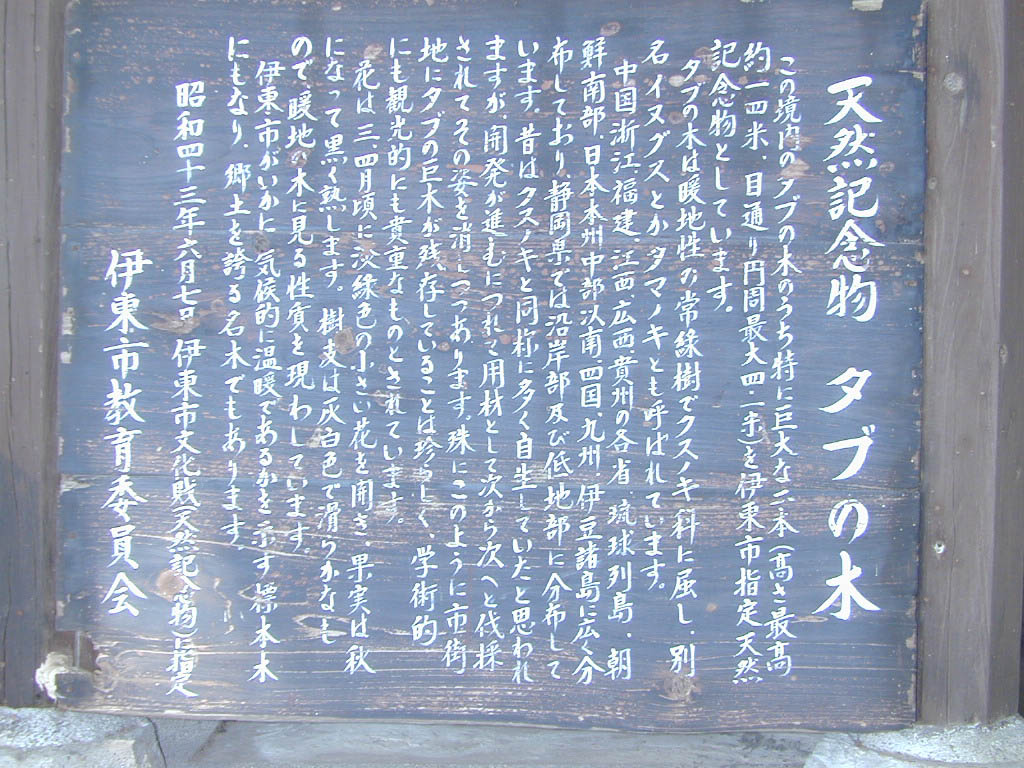 天然記念物 タブの木
この境内のタブの木のうち特に巨大な二本(高さ最高
約一四米、目通り円周最大四・一米)を伊東市指定天然
記念物としています。
タブの木は暖地性の常緑樹でクスノキ科に属し、別
名イヌグスとかタマノキとも呼ばれています。
中国浙江、福建、江西、広西、貴州の各省、琉球列島、朝
鮮南部、日本本州中部以南四国、九州、伊豆諸島に広く分
布しており、静岡県では沿岸部及び低地部に分布して
います。昔はクスノキと同様に多く自生していたと思われ
ますが、開発が進むにつれて用材として次から次へと伐採
されてその姿を消しつつあります。殊にこのように市街
地にタブの巨木が残存していることは珍らしく、学術的
にも観光的にも貴重なものとされています。
花は三、四月頃に淡緑色の小さい花を開き、果実は秋
になって黒く熟します。樹皮は灰白色で滑らかなも
ので、暖地の木に見る性質を現わしています。
伊東市がいかに、気候的に温暖であるかを示す標本木
にもなり、郷土を誇る名木でもあります。
昭和四十三年六月七日 伊東市文化財(天然記念物)に指定
伊東市教育委員会